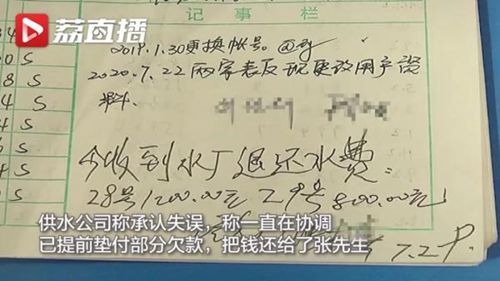 荔直播
记事栏
2019.1.30更换帐号。
2020.7.22两家表反现更改用户资
料.
今收到水厂退还水费:
28号1200.00元 29号800.00元
供水公司称承认失误，称一直在协调
已提前垫付部分欠款，把钱还给了张先生
7.29.
S
S
S
S
S
S